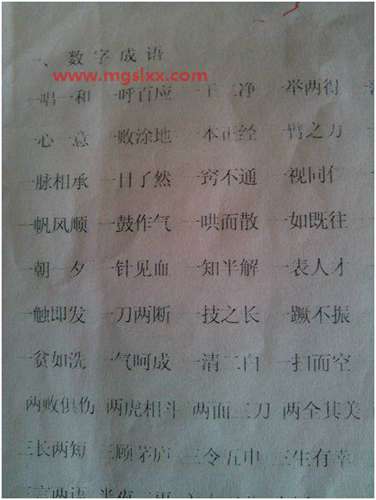 一、数字成语
www.mgslxx.com
一唱一和 一呼百应 一干二净 一举两得
一心一意 一败涂地 一本正经 一臂之力
一脉相承 一目了然 一窍不通 一视同仁
一帆风顺 一鼓作气 一哄而散 一如既往
一朝一夕 一针见血 一知半解 一表人才
一触即发 一刀两断 一技之长 一蹶不振
一贫如洗 一气呵成 一清二白 一扫而空
两败俱伤 两虎相斗 两面三刀 两全其美
三长两短 三顾茅庐 三令五申 三生有幸